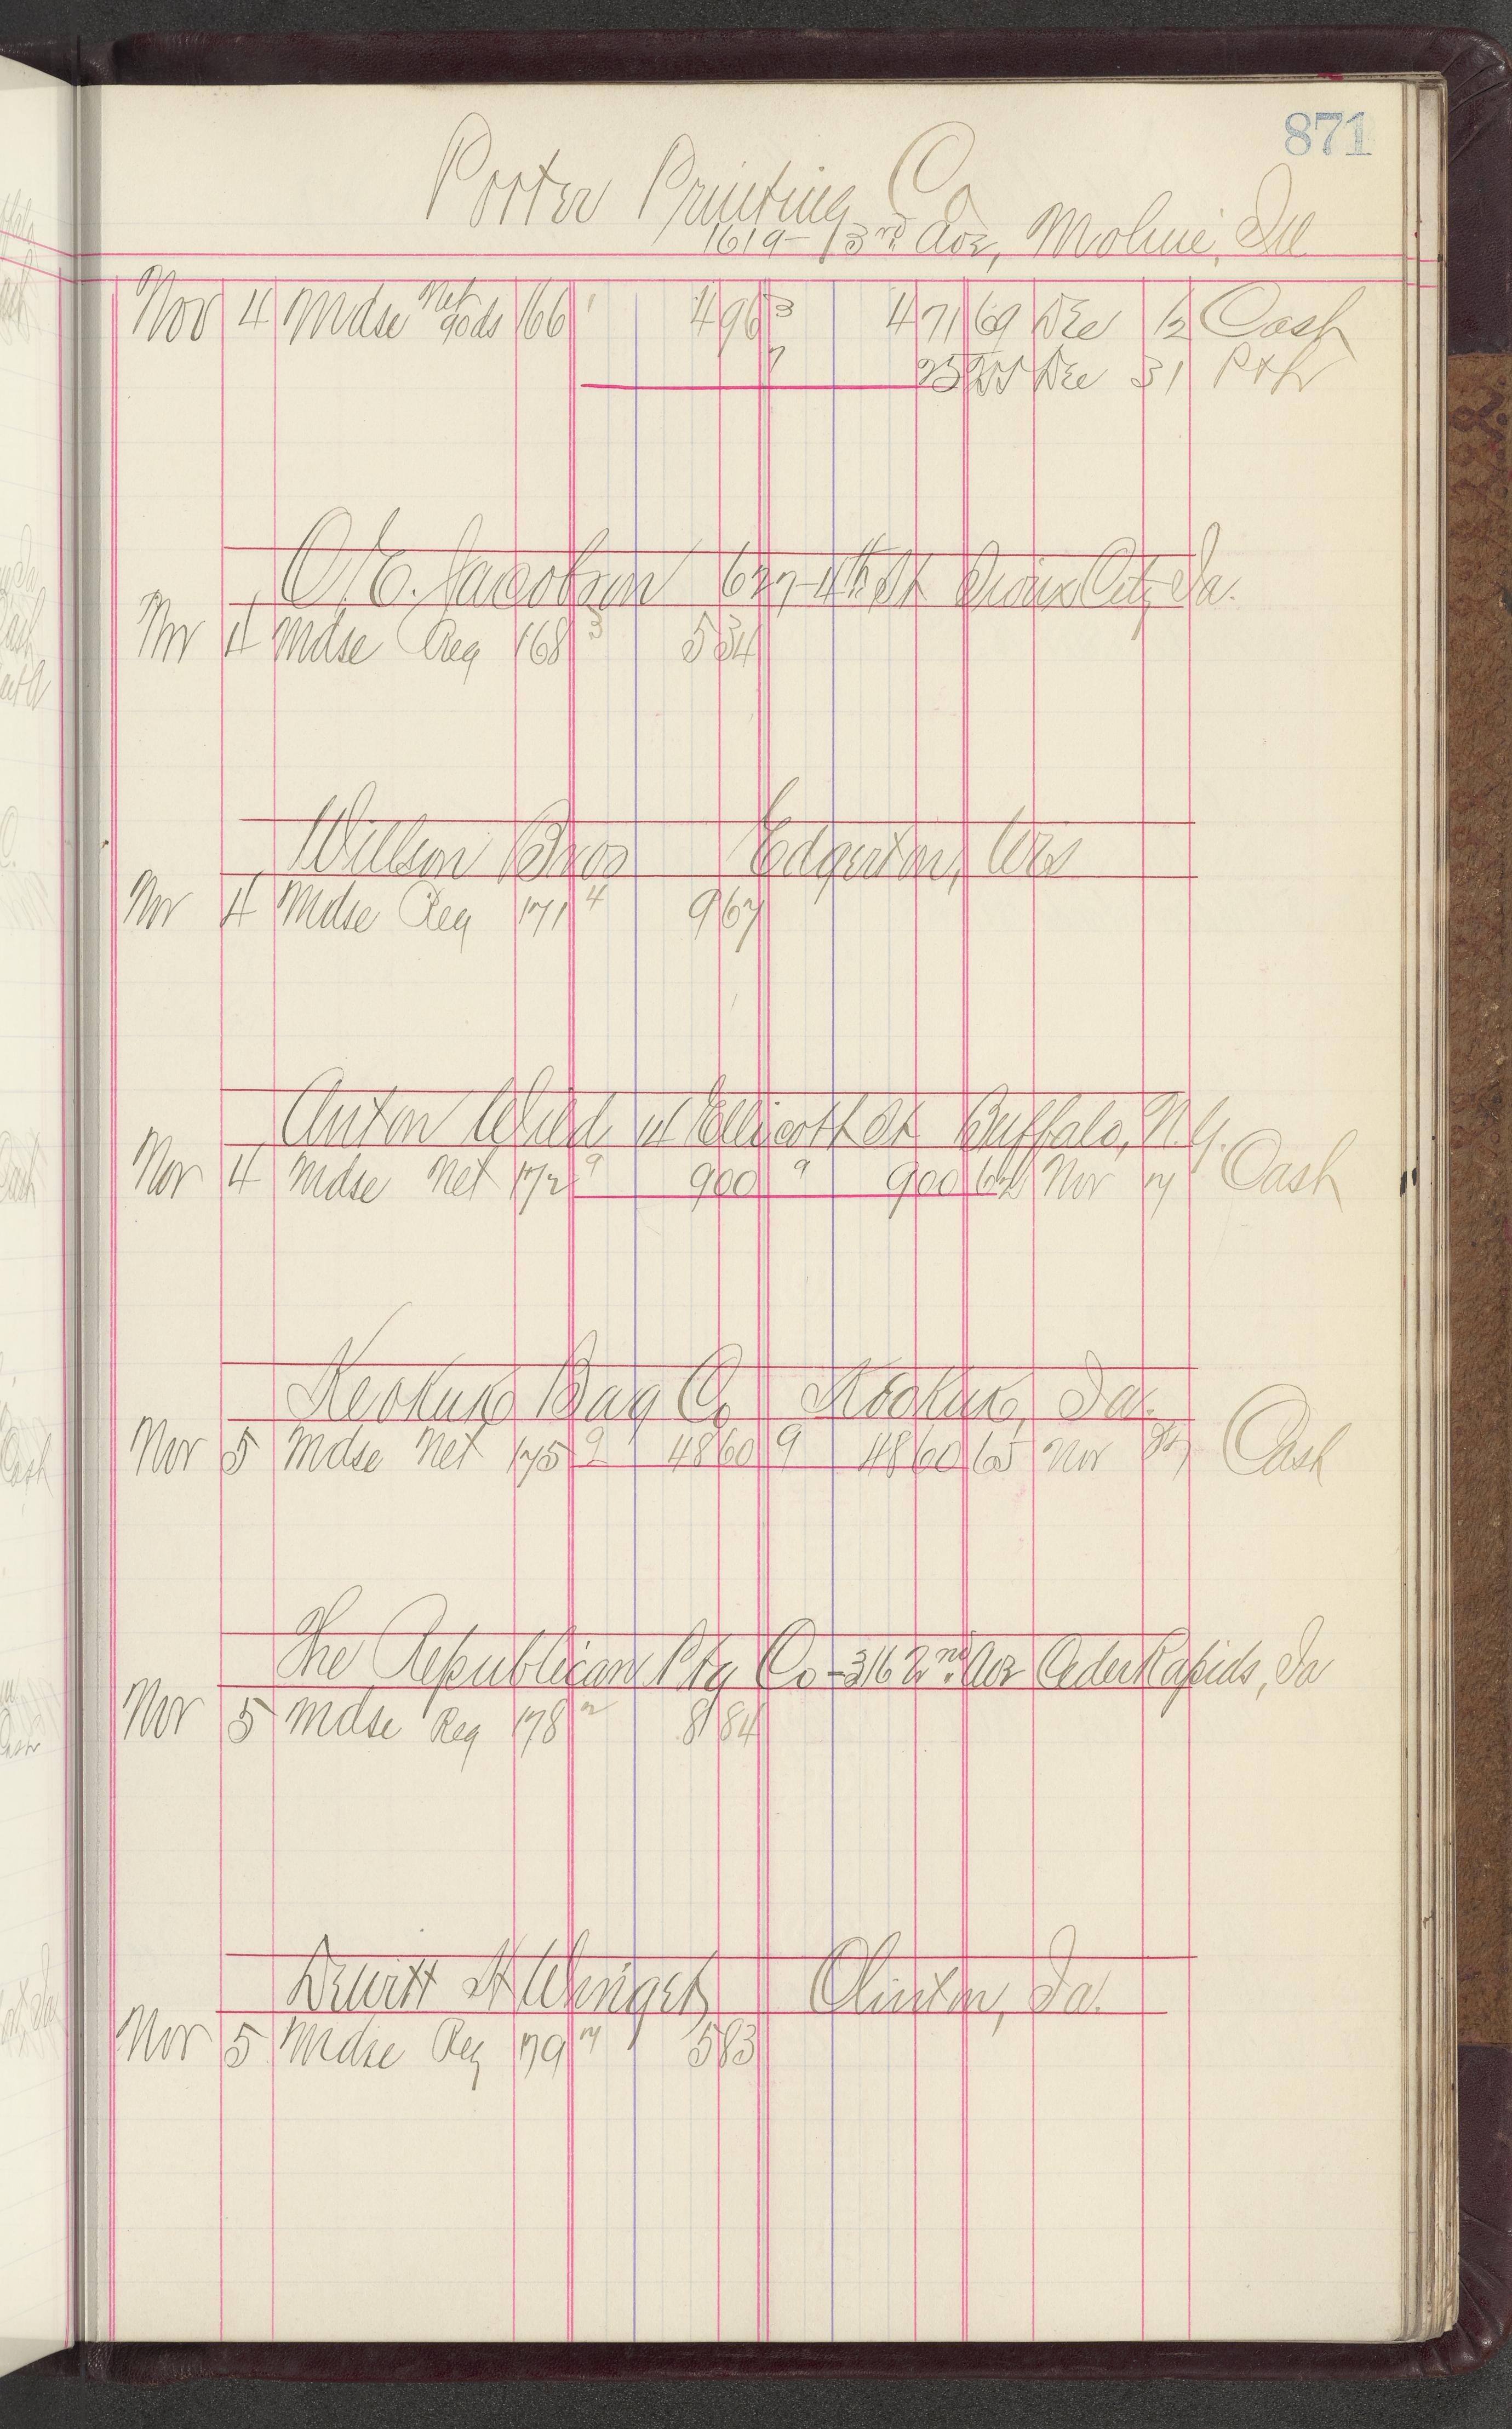 871
Porter Printing Co
1619-13rd Ave, Moline, Ill
Nov 4 Mdse Net goods 166 1 4 96 3 4 71 69 Dec 12 Cash
7 25 Dec 31
O. E. Jacobson 627-4th St Sioux City, Ia.
Nov 4 Mdse Reg 168 3 5 34
Willson Bros Edgerton, Wis
Nov 4 Mdse Reg 171 4 9 67
Anton Wild, Ellicott St Buffalo, N.Y.
Nov 4 Mdse Net 172 9 9 00 9 9 00 Nov 17 Cash
Keokuk Bag Co Keokuk, Ia.
Nov 5 Mdse Net 175 9 48 60 9 48 60 65 Nov 27 Cash
The Republican Ptg Co-316 2nd Ave Ceder Rapids, Ia
Nov 5 Mdse Reg 178 2 8 84
Dewitt H Winget, Clinton, Ia.
Nov 5 Mdse Reg 179 7 5 83